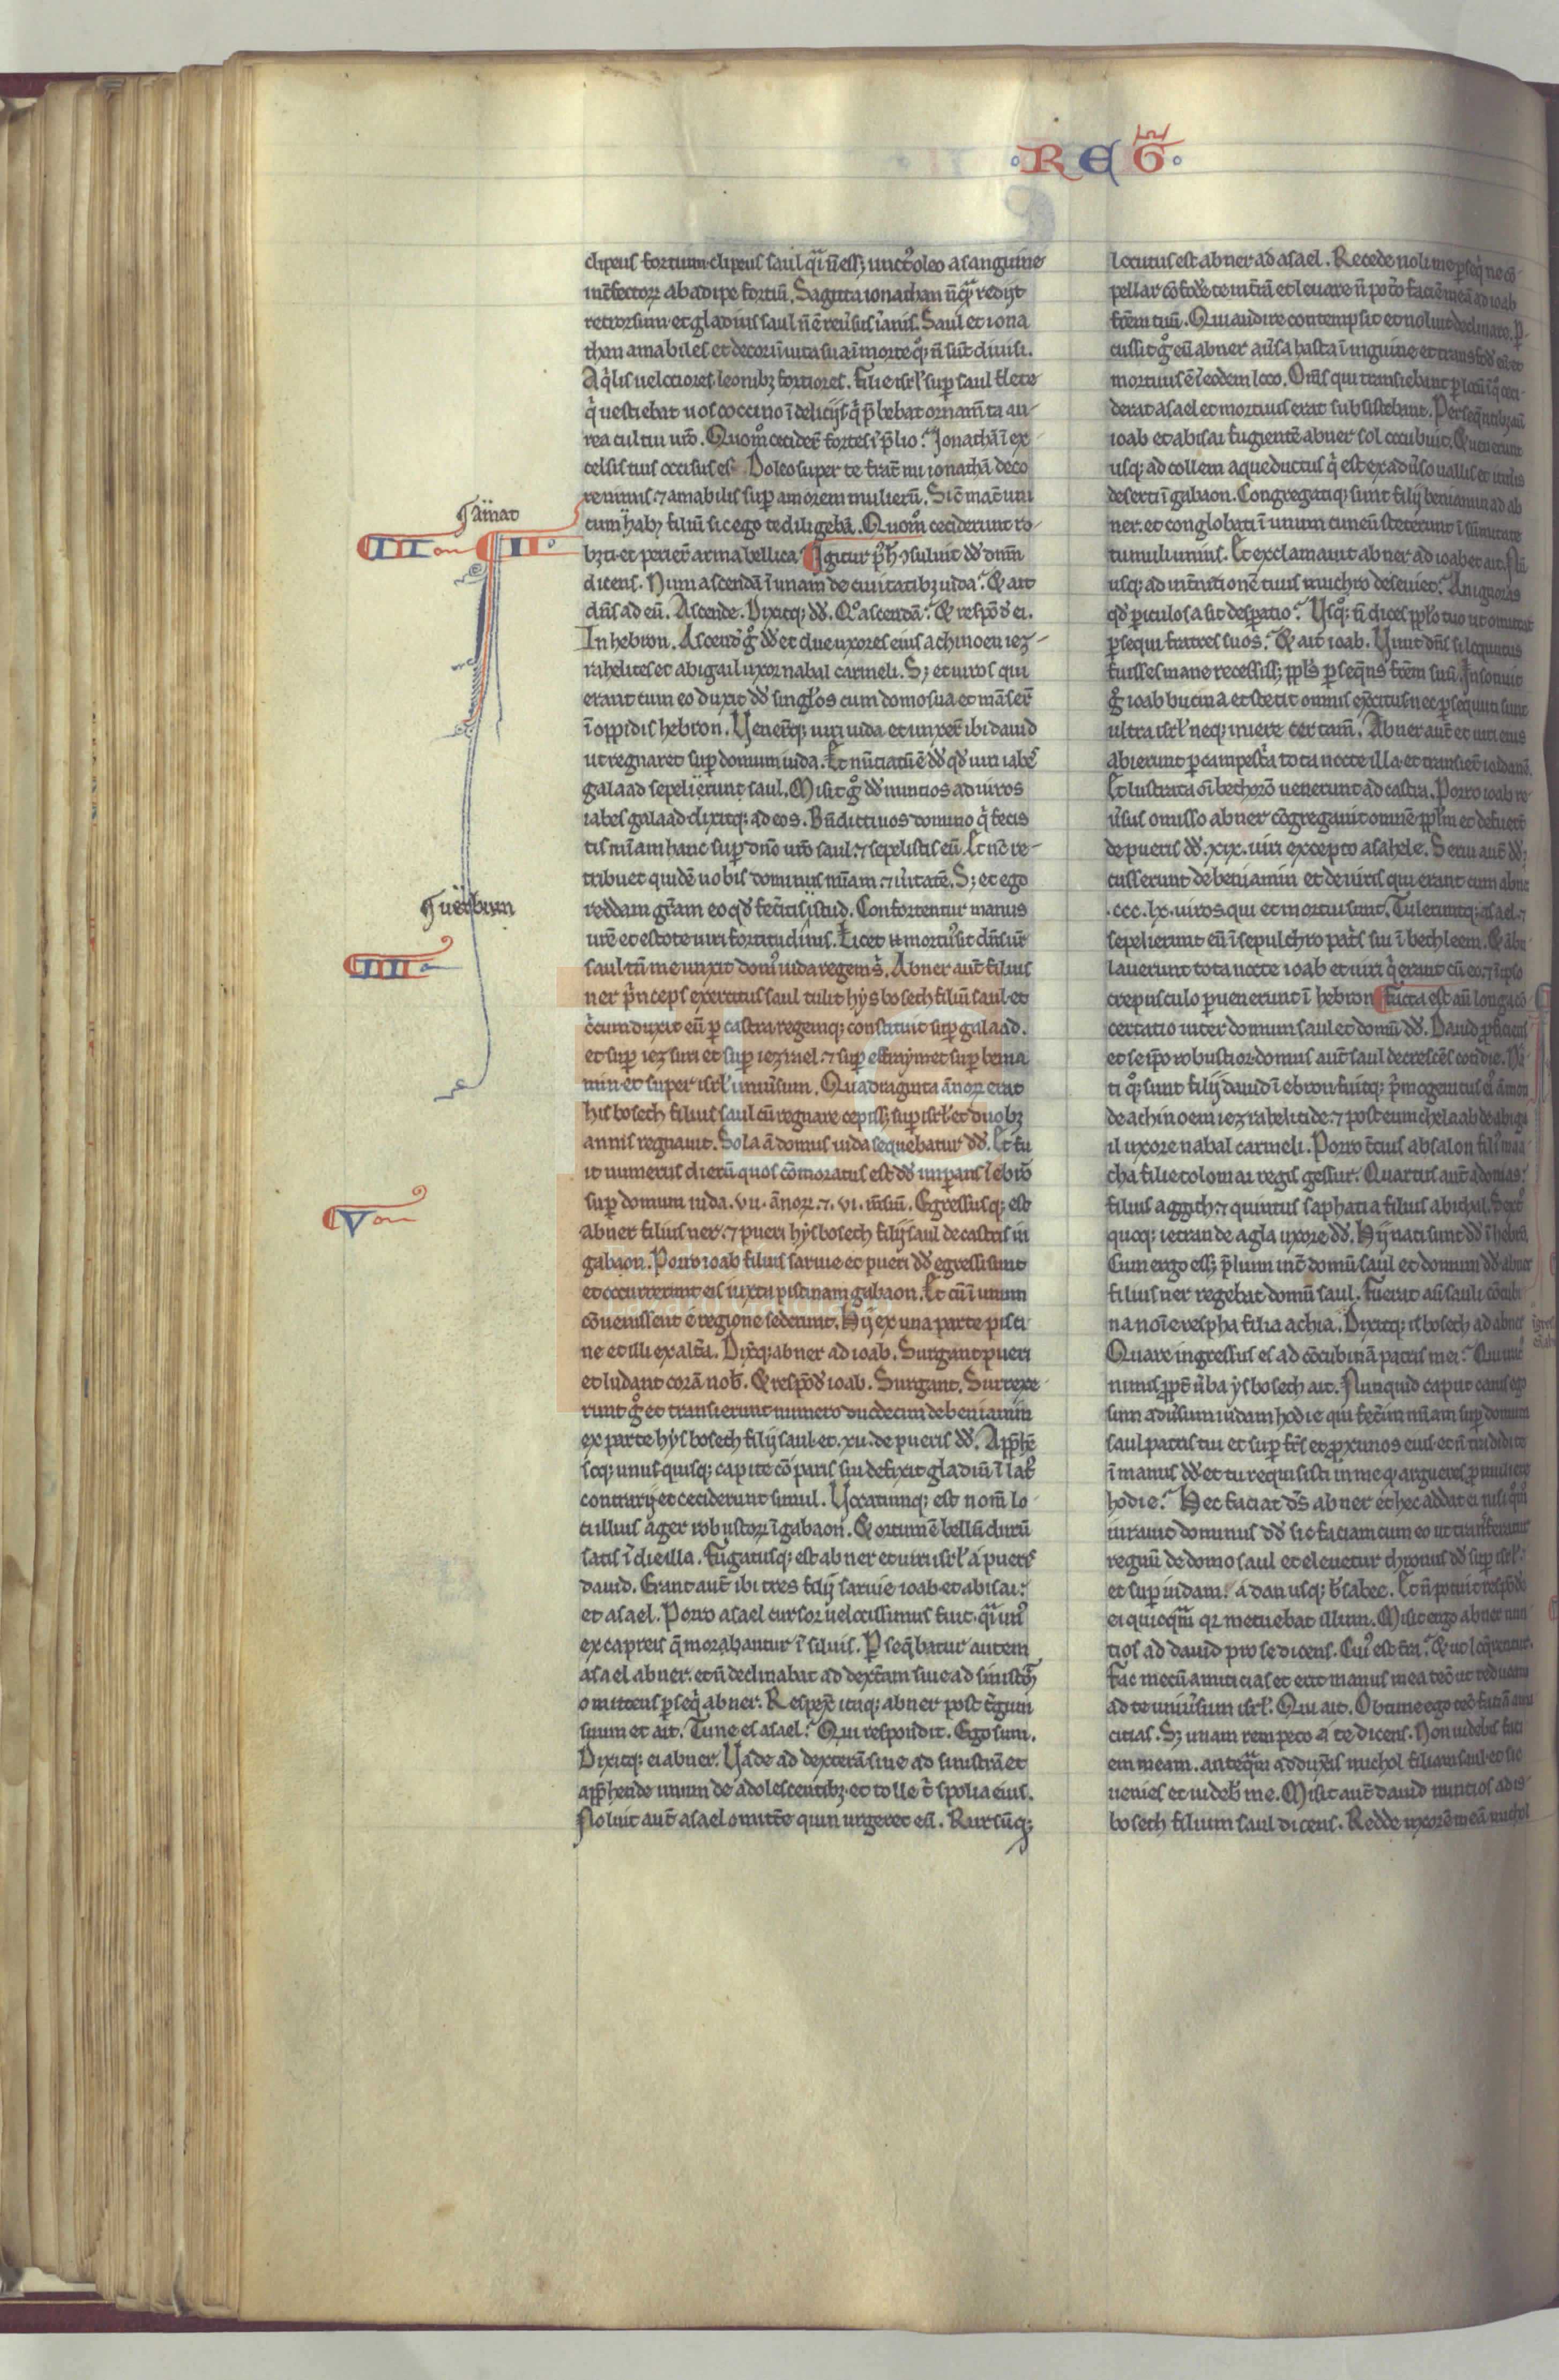 REG
clipeus fortium clipeus saul q̄i n̄ ess; unct᷒ oleo a sanguine
int̄fectoꝝ ab adipe fortiū. Sagitta ionathan n̄ q̄ rediit
retrorsum et gladius saul n̄ ē reu̾sus īanis. Saul et iona
than amabiles et decori ī uita sua ī morte q̷; n̄ sūt diuisi.
Aq̇lis uelociores leonibꝫ fortiores. Filie isrl̄ sup̄ saul flete
q̇ uestiebat uos coccino ī deliciis q̇ p̄bebat ornam̄ta au-
rea cultui ur̄o. Quom̊ cecider̄ fortes ī p̄lio? Ionathā ī ex
celsis tuis occisus es. Doleo super te frat̄ mi ionathā deco
re nimis ⁊ amabilis sup̄ amorem mulierū. Sic̄ mat̄ uni
cum hab; filiū sic ego te diligebā. Quom̊ ceciderunt ro-
bꝫti et perier̄ arma bellica Igitur p̄ h̄ ↄsuluit dd̄ dnm̄
dicens. Num ascendā ī unam de ciuitatibꝫ iuda? & ait
dn̄s ad eū. Ascende. Dixitq; dd̄. Q̊ ascendā? & respōd̄ ei.
In hebron. Ascend̄ g̊ dd̄ et due uxores eius achinoem iez-
rahelites et abigail uxor nabal carmeli. S; et uiros qui
erant cum eo duxit dd̄ singl̄os cum domo sua et māser̄
ī oppidis hebron. Venert̄q; uiri iuda et unxer̄ ibi dauid
ut regnaret sup̄ domum iuda. Et nūciatū ē dd̄ qd̄ uiri iabes
galaad sepelierunt saul. Misit g̊ dd̄ nuntios ad uiros
iabes galaad dixitq; ad eos. Bn̄dicti uos domino q̇ fecis
tis mīam hanc sup̄ dn̄o ur̄o saul ⁊ sepelistis eū. Et nc̄ re-
tribuet quidē uobis dominus mīam ⁊ u̾itatē. S; et ego
reddam gr̄am eo qd̄ fecistis istud. Confortentur manus
ur̄e et estote uiri fortitudinis. Licet n̄ mortu᷒ sit dn̄s ur̄
saul tn̄ me unxit dom᷒ iuda regem s̄. Abner aut̄ filius
ner ṗnceps exercitus saul tulit hysboseth filiū saul et
c̊cumduxit eū p̄ castra regemq; constituit sup̄ galaad.
et sup̄ iezsuri et sup̄ iezrael ⁊ sup̄ effraym et sup̄ benia
min et super isrl̄ uniu̾sum. Quadraginta ānoꝝ erat
hisboseth filius saul cū regnare cepiss; sup̄ isrl̄ et duobꝫ
annis regnauit. Sola ā domus iuda sequebatur dd̄. Et fu
it numerus dierū quos cōmoratus est dd̄ imp̄ans ī ebrō
sup̄ domum iuda .vii. ānoꝝ ⁊ .vi. m̄siū. Egressusq; est
abner filius ner ⁊ pueri hysboseth filij saul de castris in
gabaon. Porro ioab filius saruie et pueri dd̄ egressi sunt
et occurrerunt eis iuxta piscinam gabaon. Et cū ī unum
cōuenissent e regione sederunt. Hij ex una parte pisci
ne et illi ex alt̄a. Dix̄q; abner ad ioab. Surgant pueri
et ludant corā nob̄. & respōd̄ ioab. Surgant. Surrexe
runt g̊ et transierunt numero duodecim de beniamin
ex parte hysboseth filij saul et .xii. de pueris dd̄. App̄hē
soq; unus quisq; capite cōparis sui defixit gladiū ī lat̄
contrarij et ceciderunt simul. Vocatumq; est nom̄ lo
ci illius ager robustoꝝ ī gabaon. & ortum ē bellū durū
satis ī die illa. Fugatusq; est abner et uiri isrl̄ a pueris
dauid. Erant aut̄ ibi tres filij saruie ioab et abisai
et asael. Porro asael cursor uelocissimus fuit q̄i un᷒
ex capreis q̄ morabantur ī siluis. P̄seq̄batur autem
asael abner. et n̄ declinabat ad dext̄am siue ad sinist̄
omittens p̄seq̇ abner. Respex̄ itaq; abner post t̄gum
suum et ait. Tu ne es asael? Qui respondit. Ego sum.
Dixitq; ei abner. Vade ad dexterā siue ad sinistrā et
app̄hende unum de adolescentibꝫ et tolle t̄ spolia eius.
Noluit aut̄ asael omitt̄e quin urgeret eū. Rursūq;
amat
III
II
uerbum
IIII
V
locutus est abner ad asael. Recede noli me p̄seq̇ ne cō-
pellar cōfod̄e te in t̄ram et leuare n̄ pot̄o faciē meā ad ioab
fr̄em tuū. Qui audire contempsit et noluit declinare. P̄-
cussit g̊ eū abner au̾sa hasta ī inguine et transfod̄ eū et
mortuus ē ī eodem loco. Om̄s qui transiebant p̄ locū ī q̊ ceci-
derat asael et mortuus erat subsistebant. Perseq̄ntibꝫ aū
ioab et abisai fugientē abner sol occubuit. & uenerunt
usq; ad collem aqueductus q̇ est ex adu̾so uallis et itin̄is
deserti ī gabaon. Congregatiq; sunt filij beniamin ad ab
ner. et conglobati ī unum cuneū steterunt ī sūmitate
tumuli unius. Et exclamauit abner ad ioab et ait. Nū
usq; ad int̄nitionē tuus mucro deseuiet? An ignoras
qd̄ p̄iculosa sit desp̄atio? Usq; q̊ n̄ dices pplo tuo ut omittat
p̄sequi fratres suos? & ait ioab. Viuit dn̄s si locutus
fuisses mane recessiss; ppls p̄seq̄ns fr̄em suū. Insonuit
g̊ ioab bucina et stetit omnis ex̄citus nec p̄secuti sunt
ultra isrl̄ neq; iniere certam̄. Abner aut̄ et uiri eius
abierunt p̄ campest̄a tota nocte illa. et transier̄t iordanē.
Et lustrata oī bethorō uenerunt ad castra. Porro ioab re
u̾sus omisso abner cōgregauit omnē pplm et defuert̄
de pueris dd̄ .xix. uiri excepto asahele. Serui aut̄ dd̄
cusserunt de beniamin et de uiris qui erant cum abne
.ccc. lx. uiros qui et mortui sunt. Tuleruntq; asael ⁊
sepelierunt eū ī sepulchro patis sui ī bethleem. & ābu
lauerunt tota nocte ioab et uiri q̇ erant cū eo. ⁊ ī ipso
crepusculo p̄uenerunt ī hebron Facta est aū longa cō
certatio inter domum saul et domū dd̄. Dauid p̄ficiens
et se ipo robustior domus aut̄ saul decrescēs cotidie. Na
ti q̊; sunt filij dauid ī ebron fuitq; ṗmogenitus ei᷒ āmon
de achinoem iezrahelitide. ⁊ post eum chelaab de abiga
il uxore nabal carmeli. Porro t̄cius absalon fili᷒ maa
cha filie tolomai regis gessur. Quartus aut̄ adonias
filius aggith. ⁊ quintus saphatia filius abithal. Sext᷒
quoq; ietran de agla uxore dd̄. Hij nati sunt dd̄ ī hebrō
Cum ergo ess; p̄lium int̄ domū saul et domum dd̄ abner
filius ner regebat domū saul. Fuerat aū sauli cōcubi
na noīe respha filia achia. Dixitq; isboseth ad abner
Quare ingressus es ad cōcubinā patris mei? Qui irat᷒
nimis ppt̄ u̾ba ysboseth ait. Nunquid caput canis ego
sum adu̾sum iudam hodie qui fecerim mīam sup̄ domum
saul patris tui et sup̄ fr̄es et proximos eius et n̄ tradidi te
ī manus dd̄ et tu requisisti in me q̊ argueres p̄ muliere
hodie? Hec faciat ds̄ abner et hec addat ei nisi quō
iurauit dominus dd̄ sic faciam cum eo ut transferatur
regnū de domo saul et eleuetur thronus dd̄ sup̄ isrl̄
et sup̄ iudam. a dan usq; b̄sabee. Et n̄ potuit respōd̄e
ei quicq̄m qr metuebat illum. Misit ergo abner nun
tios ad dauid pro se dicens. Cui᷒ est t̄ra? & ut loq̄rentur.
Fac mecū amicicias et erit manus mea tecū ut reducam
ad te uniu̾sum isrl̄. Qui ait. Optime ego tecū faciā ami
citias. S; unam rem peto a te dicens. Non uidebis faci
em meam. anteq̄m adduxeis michol filiam saul et sic
uenies et uideb̄ me. Misit aut̄ dauid nuncios ad is-
boseth filium saul dicens. Redde uxorē meā michol